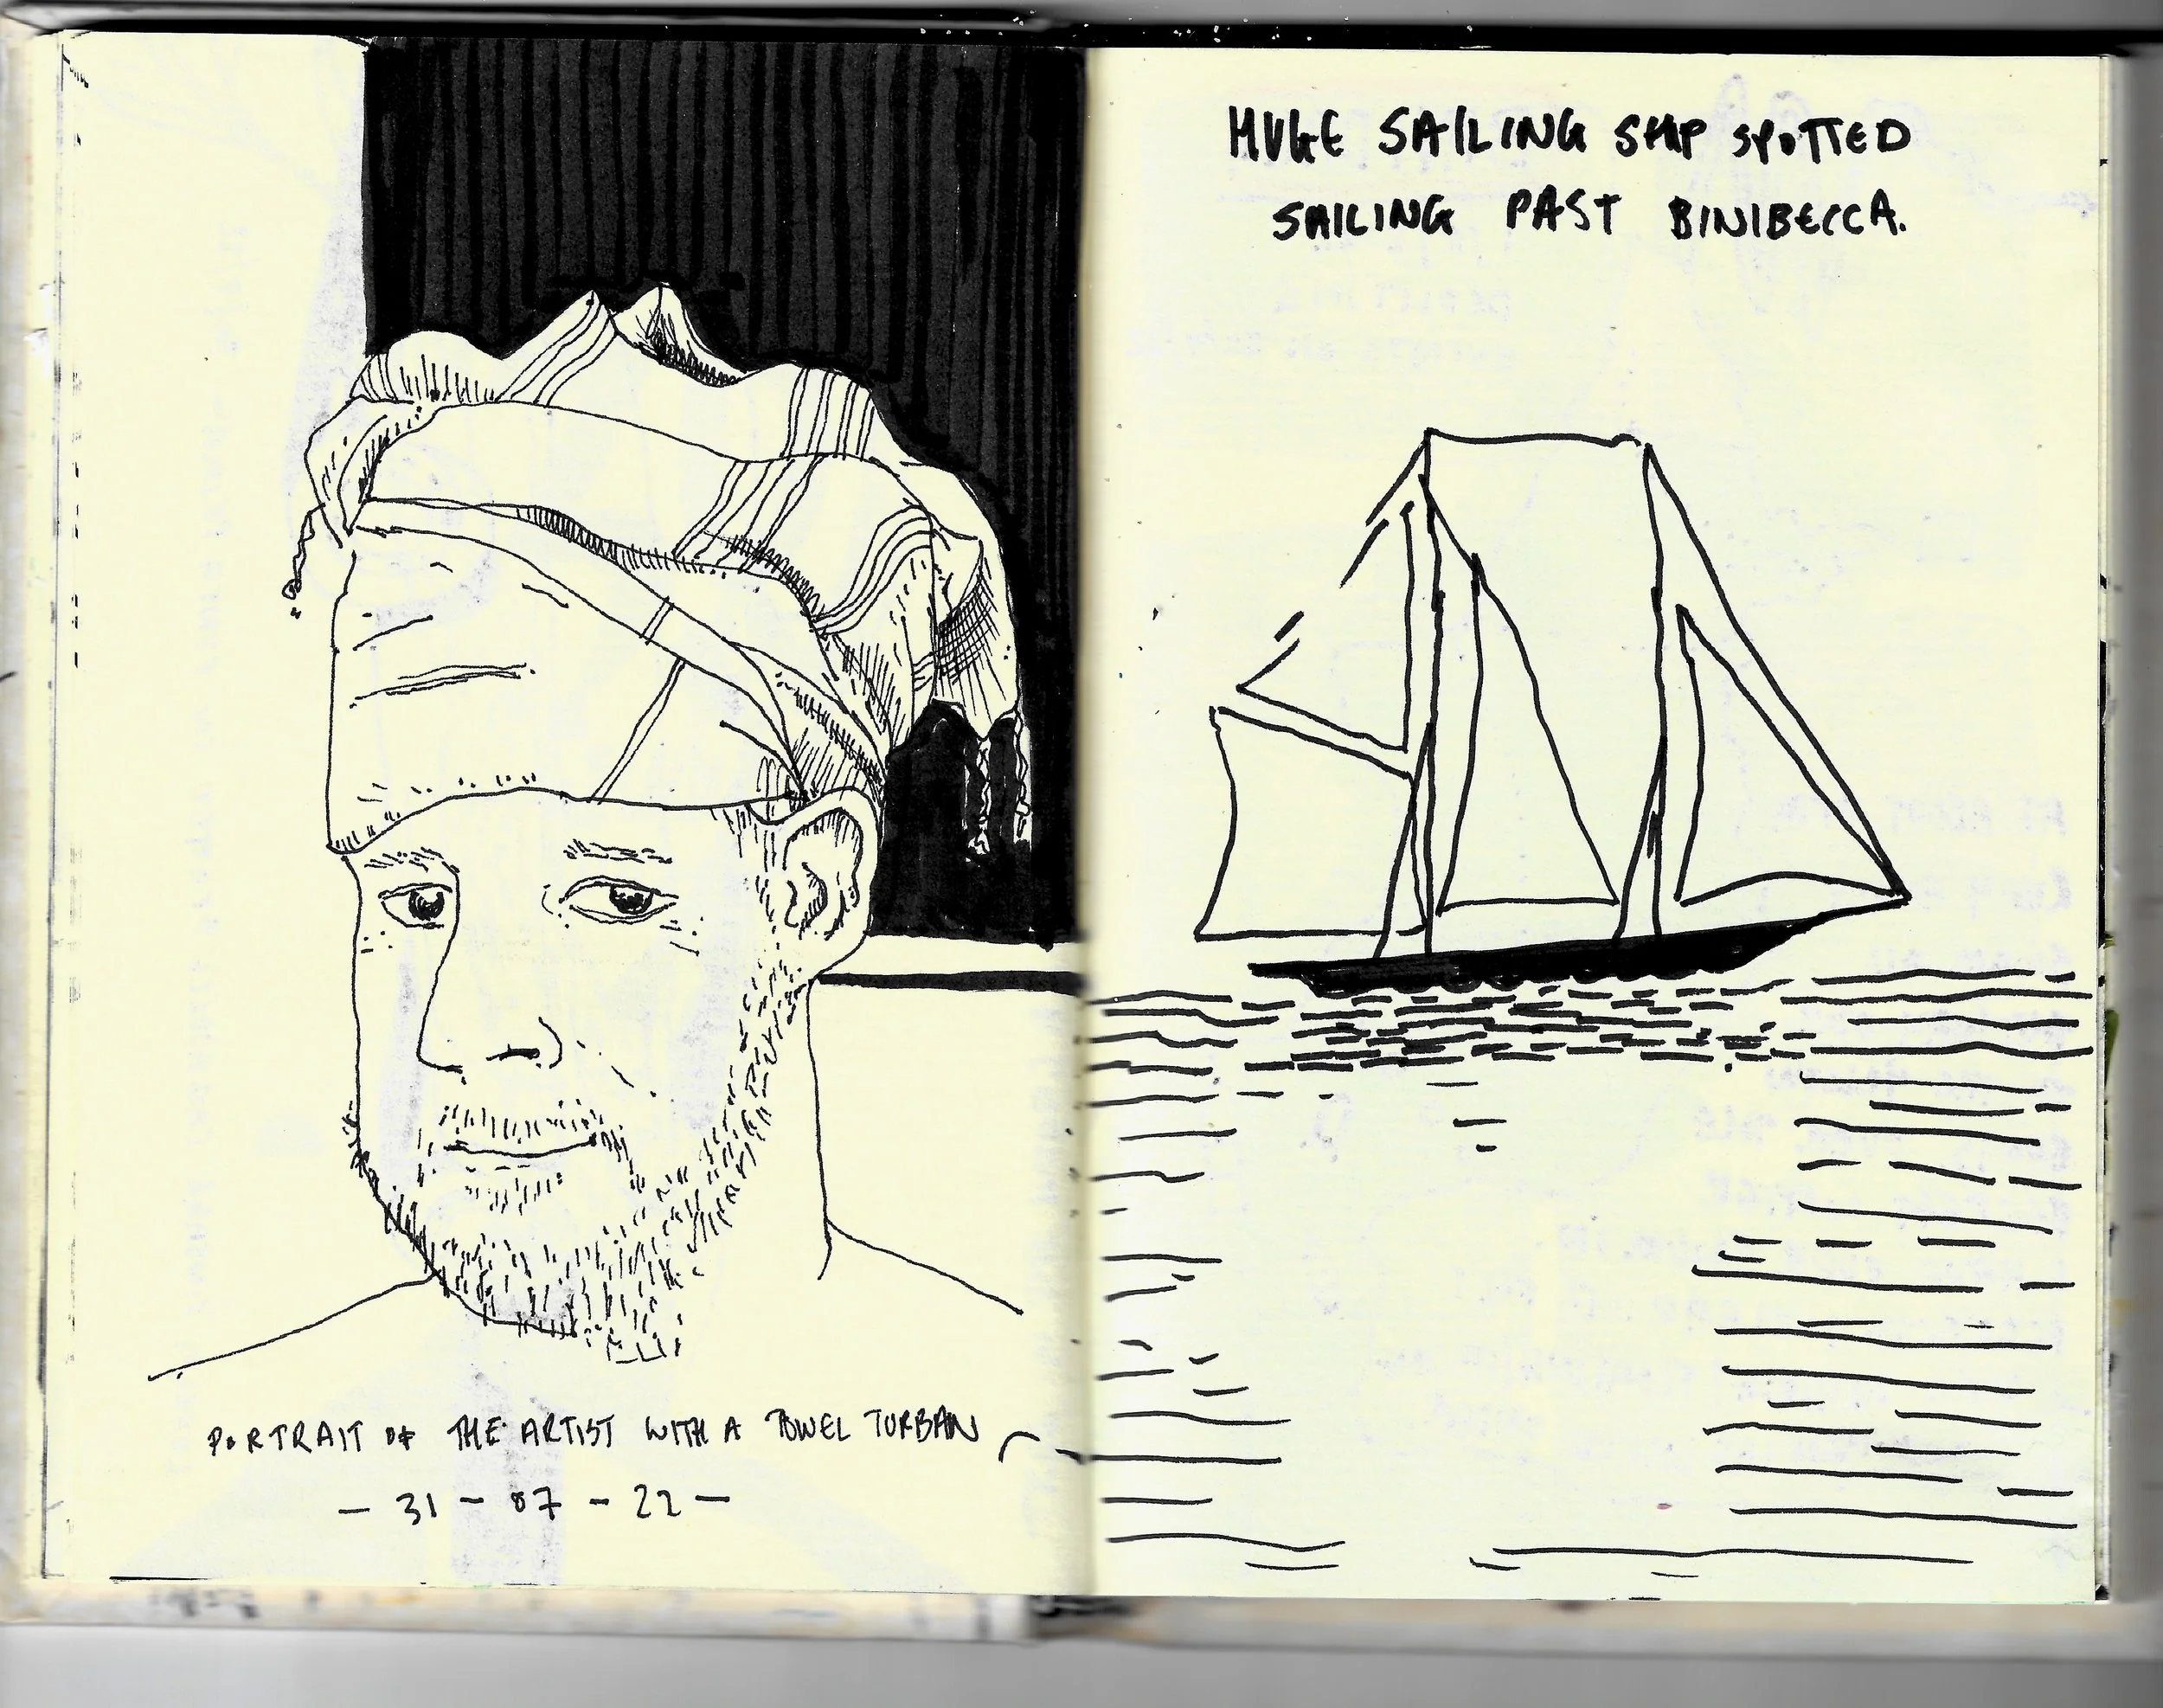 PORTRAIT OF THE ARTIST WITH A TOWEL TURBAN
- 31 - 07 - 22 -
HUGE SAILING SHIP SPOTTED
SAILING PAST BINIBECCA.